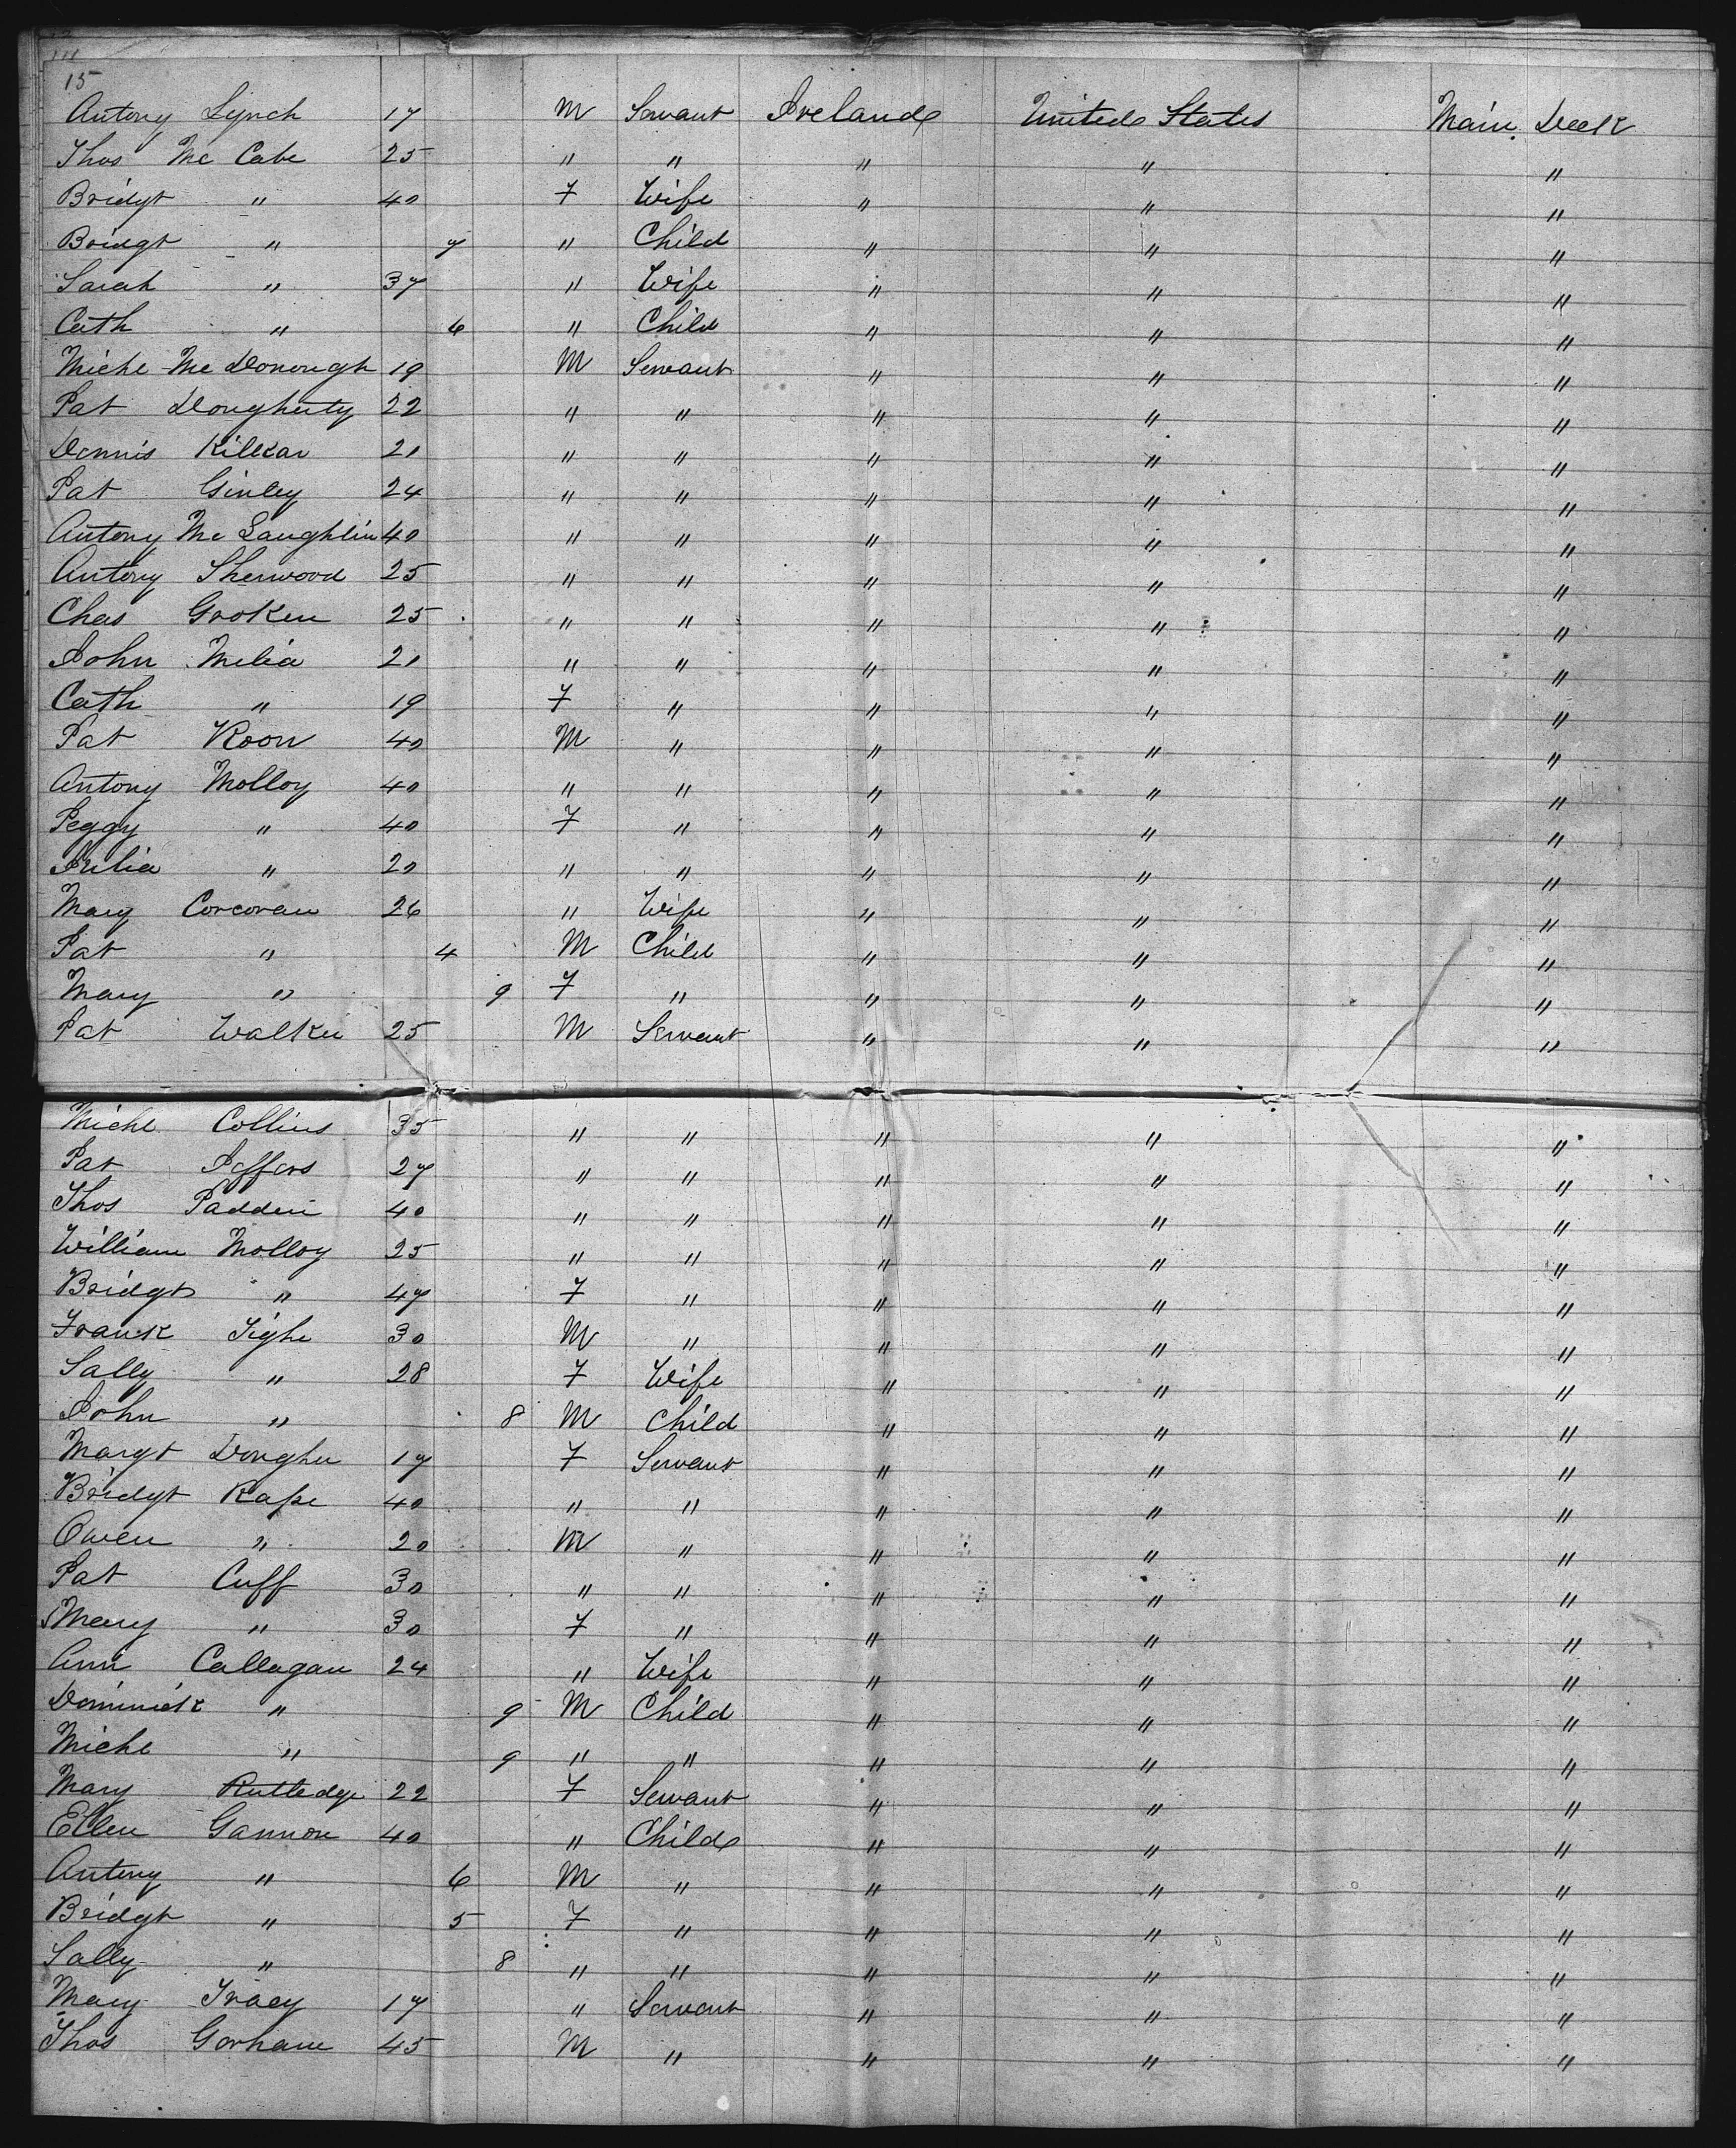 15
Antony Lynch 17 M Servant Ireland United States Main Deck
Thos Mc Cabe 25 " " " " "
Bridgt " 40 F Wife " " "
Bridgt " 7 " Child " " "
Sarah " 37 " Wife " " "
Cath " 6 " Child " " "
Michl Mc Donough 19 M Servant " " "
Pat Dougherty 22 " " " " "
Dennis Kilkar 21 " " " " "
Pat Ginley 24 " " " " "
Antony Mc Laughlin 40 " " " " "
Antony Sherwood 25 " " " " "
Chas Groken 25 " " " " "
John Melia 21 " " " " "
Cath " 19 F " " " "
Pat Koon 40 M " " " "
Antony Molloy 40 " " " " "
Peggy " 40 F " " " "
Julia " 20 " " " " "
Mary Corcoran 26 " Wife " " "
Pat " 4 M Child " " "
Mary " 9 F " " " "
Pat Walker 25 M Servant " " "
Michl Collins 35 " " " " "
Pat Jeffers 27 " " " " "
Thos Padden 40 " " " " "
William Molloy 25 " " " " "
Bridgt " 47 F " " " "
Frank Tighe 30 M " " " "
Sally " 28 F Wife " " "
John " 8 M Child " " "
Margt Dougher 17 F Servant " " "
Bridgt Kape 40 " " " " "
Owen " 20 M " " " "
Pat Cuff 30 " " " " "
Mary " 30 F " " " "
Ann Callagan 24 " Wife " " "
Dominick " 9 M Child " " "
Michl " 9 " " " " "
Mary Rutledge 22 F Servant " " "
Ellen Gannon 40 " Child " " "
Antony " 6 M " " " "
Bridgt " 5 F " " " "
Sally " 8 " " " " "
Mary Tracy 17 " Servant " " "
Thos Gorham 45 M " " " "